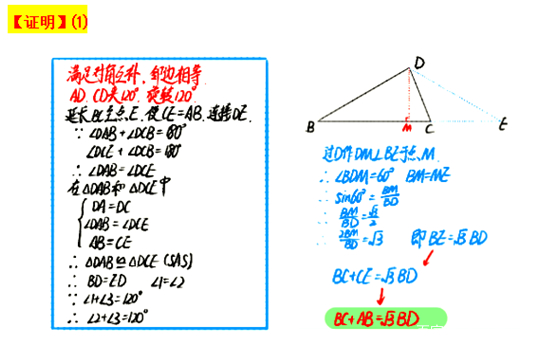 【证明】(1)
满足对角互补，邻边相等
AD、CD夹120°，旋转120°
延长BC至点E，使CE=AB，连接DE
∵ ∠DAB+∠DCB=180°
∠DCE+∠DCB=180°
∴ ∠DAB=∠DCE
在△DAB和△DCE中
DA=DC
∠DAB=∠DCE
AB=CE
∴ △DAB≌△DCE (SAS)
∴ BD=ED ∠1=∠2
∵ ∠1+∠3=120°
∴ ∠2+∠3=120°
D
B
M
C
E
过D作DM⊥BE于点M
∴ ∠BDM=60° BM=ME
∴ sin60°=BM/BD
∴ BM/BD=√3/2
∴ 2BM/BD=√3 即BE=√3BD
BC+CE=√3BD
BC+AB=√3BD